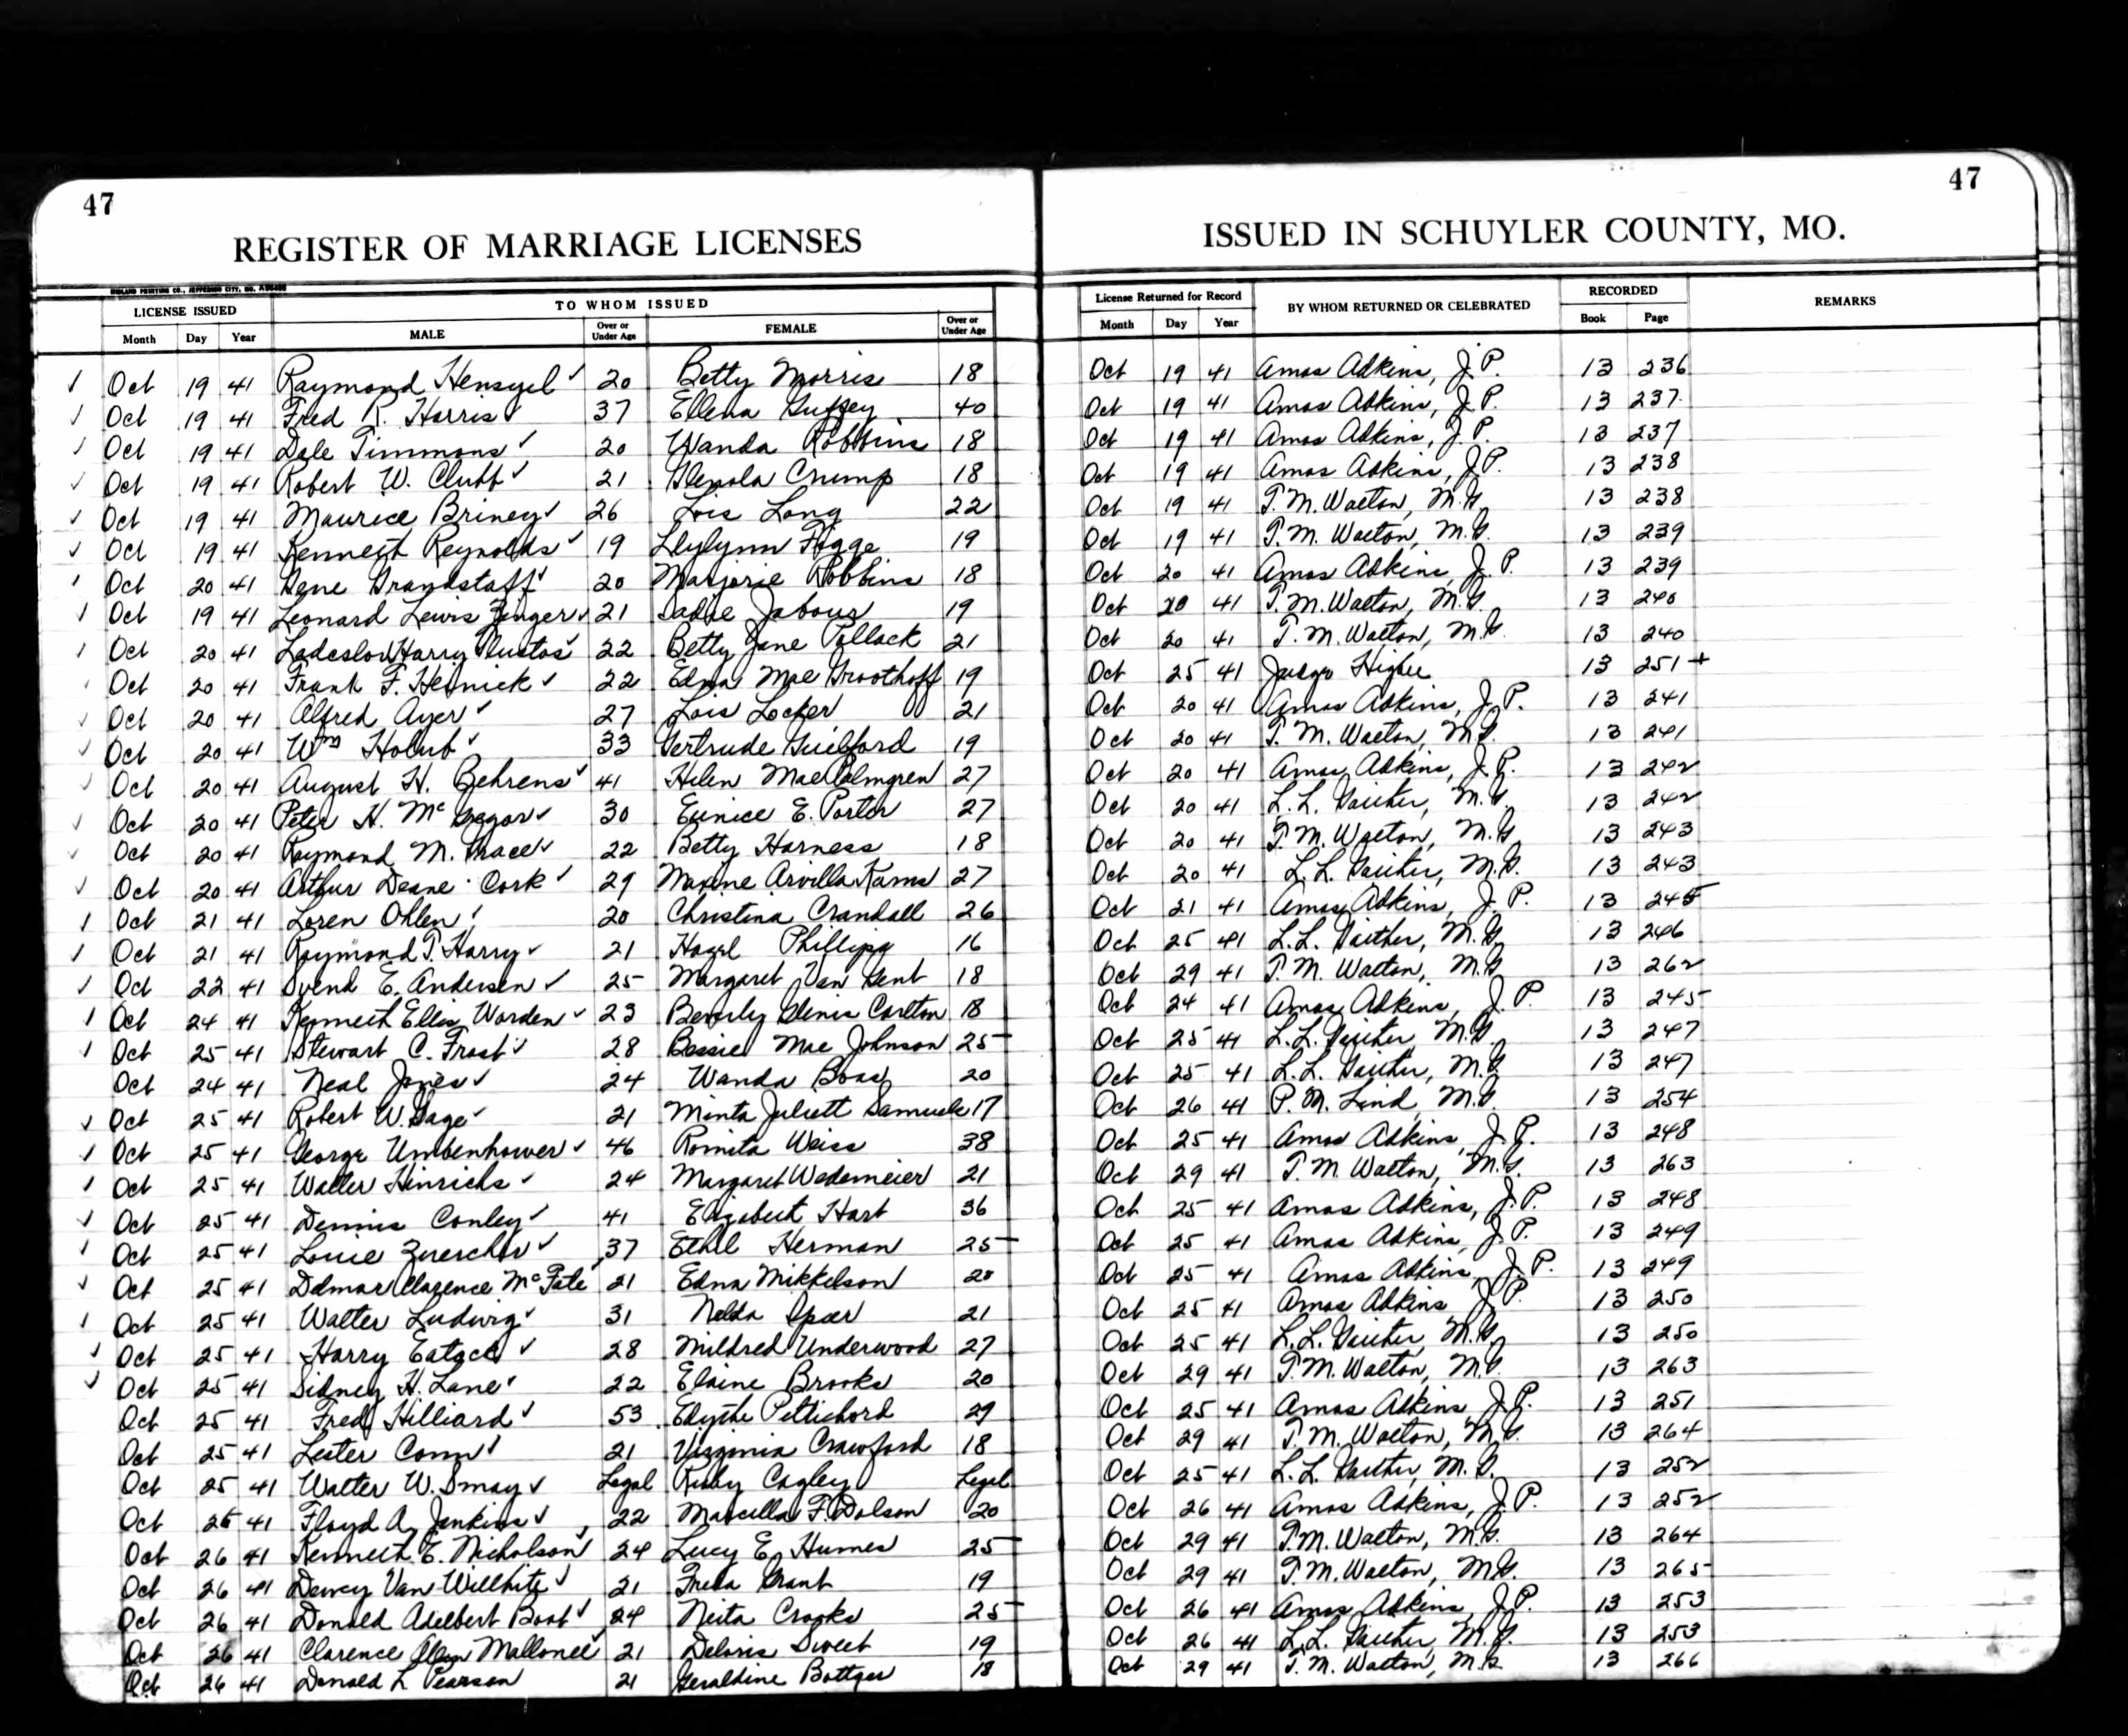 47
47
REGISTER OF MARRIAGE LICENSES ISSUED IN SCHUYLER COUNTY, MO.
MIDLAND PRINTING CO., JEFFERSON CITY, MO.
LICENSE ISSUED TO WHOM ISSUED License Returned for Record BY WHOM RETURNED OR CELEBRATED RECORDED REMARKS
Month Day Year MALE Over or Under Age FEMALE Over or Under Age Month Day Year Book Page
✓ Oct 19 41 Raymond Hensyel ✓ 20 Betty Morris 18 Oct 19 41 Amos Adkins, J.P. 13 236
✓ Oct 19 41 Fred R. Harris ✓ 37 Ellena Guffey 40 Oct 19 41 Amos Adkins, J.P. 13 237
✓ Oct 19 41 Dale Timmons ✓ 20 Wanda Robbins 18 Oct 19 41 Amos Adkins, J.P. 13 237
✓ Oct 19 41 Robert W. Clubb ✓ 21 Glenola Crump 18 Oct 19 41 Amos Adkins, J.P. 13 238
✓ Oct 19 41 Maurice Briney ✓ 26 Lois Long 22 Oct 19 41 T.M. Walton, M.G. 13 238
✓ Oct 19 41 Kenneth Reynolds ✓ 19 Llylynn Figge 19 Oct 19 41 T.M. Walton, M.G. 13 239
✓ Oct 20 41 Gene Grandstaff ✓ 20 Marjorie Robbins 18 Oct 20 41 Amos Adkins, J.P. 13 239
✓ Oct 19 41 Leonard Lewis Zenger ✓ 21 Sadie Jabour 19 Oct 20 41 T.M. Walton, M.G. 13 240
✓ Oct 20 41 Harry ✓ 22 Betty Jane Pollack 21 Oct 20 41 T.M. Walton, M.G. 13 240
✓ Oct 20 41 Frank F. ✓ 22 Edna Mae Groothoff 19 Oct 25 41 Judge Higbee 13 251+
✓ Oct 20 41 Alfred Ayer ✓ 27 Lois Locker 21 Oct 20 41 Amos Adkins, J.P. 13 241
✓ Oct 20 41 Wm Holub ✓ 33 Gertrude Guilford 19 Oct 20 41 T.M. Walton, M.G. 13 241
✓ Oct 20 41 August H. Behrens ✓ 41 Helen Mae Palmgren 27 Oct 20 41 Amos Adkins, J.P. 13 242
✓ Oct 20 41 Peter H. McGregor ✓ 30 Eunice E. Porter 27 Oct 20 41 L.L. Gaither, M.G. 13 242
✓ Oct 20 41 Raymond M. Grace ✓ 22 Betty Harness 18 Oct 20 41 T.M. Walton, M.G. 13 243
✓ Oct 20 41 Arthur Deane Cork ✓ 29 Maxine Arvilla Kams 27 Oct 20 41 L.L. Gaither, M.G. 13 243
✓ Oct 21 41 Loren Ohlen ✓ 20 Christina Crandall 26 Oct 21 41 Amos Adkins, J.P. 13 245
✓ Oct 21 41 Raymond T. Harry ✓ 21 Hazel Phillips 16 Oct 25 41 L.L. Gaither, M.G. 13 246
✓ Oct 22 41 Svend E. Andersen ✓ 25 Margaret Van Gent 18 Oct 29 41 T.M. Walton, M.G. 13 262
✓ Oct 24 41 Kenneth Ellis Worden ✓ 23 Beverly Glenis Carlton 18 Oct 24 41 Amos Adkins, J.P. 13 245
✓ Oct 25 41 Stewart C. Frost ✓ 28 Bessie Mae Johnson 25 Oct 25 41 L.L. Gaither, M.G. 13 247
Oct 24 41 Neal Jones ✓ 24 Wanda Boas 20 Oct 25 41 L.L. Gaither, M.G. 13 247
✓ Oct 25 41 Robert W. Gage ✓ 21 Minta Juliett Samuels 17 Oct 26 41 P.M. Lind, M.G. 13 254
✓ Oct 25 41 George Umbenhower ✓ 46 Romita Weiss 38 Oct 25 41 Amos Adkins, J.P. 13 248
✓ Oct 25 41 Walter Hinrichs ✓ 24 Margaret Wedemeier 21 Oct 29 41 T.M. Walton, M.G. 13 263
✓ Oct 25 41 Dennis Conley ✓ 41 Elizabeth Hart 36 Oct 25 41 Amos Adkins, J.P. 13 248
✓ Oct 25 41 Louie Zuercher ✓ 37 Ethel Herman 25 Oct 25 41 Amos Adkins, J.P. 13 249
✓ Oct 25 41 Delmar Clarence McFate 21 Edna Mikkelson 20 Oct 25 41 Amos Adkins, J.P. 13 249
✓ Oct 25 41 Walter Ludwig ✓ 31 Nelda Spoer 21 Oct 25 41 Amos Adkins J.P. 13 250
✓ Oct 25 41 Harry Eatock ✓ 28 Mildred Underwood 27 Oct 25 41 L.L. Gaither, M.G. 13 250
✓ Oct 25 41 Sidney H. Lane ✓ 22 Elaine Brooks 20 Oct 29 41 T.M. Walton, M.G. 13 263
Oct 25 41 Fred Hilliard ✓ 53 Edythe Pettichord 29 Oct 25 41 Amos Adkins J.P. 13 251
Oct 25 41 Lester Conn ✓ 21 Virginia Crawford 18 Oct 29 41 T.M. Walton, M.G. 13 264
Oct 25 41 Walter W. Smay ✓ Legal Ruby Cagley Legal Oct 25 41 L.L. Gaither, M.G. 13 252
Oct 26 41 Floyd A. Jenkins ✓ 22 Marcella F. Dolson 20 Oct 26 41 Amos Adkins, J.P. 13 252
Oct 26 41 Kenneth E. Nicholson ✓ 24 Lucy E. Humes 25 Oct 29 41 T.M. Walton, M.G. 13 264
Oct 26 41 Dewey Van Willhite ✓ 21 Freda Grant 19 Oct 29 41 T.M. Walton, M.G. 13 265
Oct 26 41 Donald Adelbert Boot ✓ 24 Neita Crooks 25 Oct 26 41 Amos Adkins, J.P. 13 253
Oct 26 41 Clarence Mallonee ✓ 21 Deloris Sweet 19 Oct 26 41 L.L. Gaither, M.G. 13 253
Oct 26 41 Donald L Pearson 21 Geraldine Bottger 18 Oct 29 41 T.M. Walton, M.G. 13 266